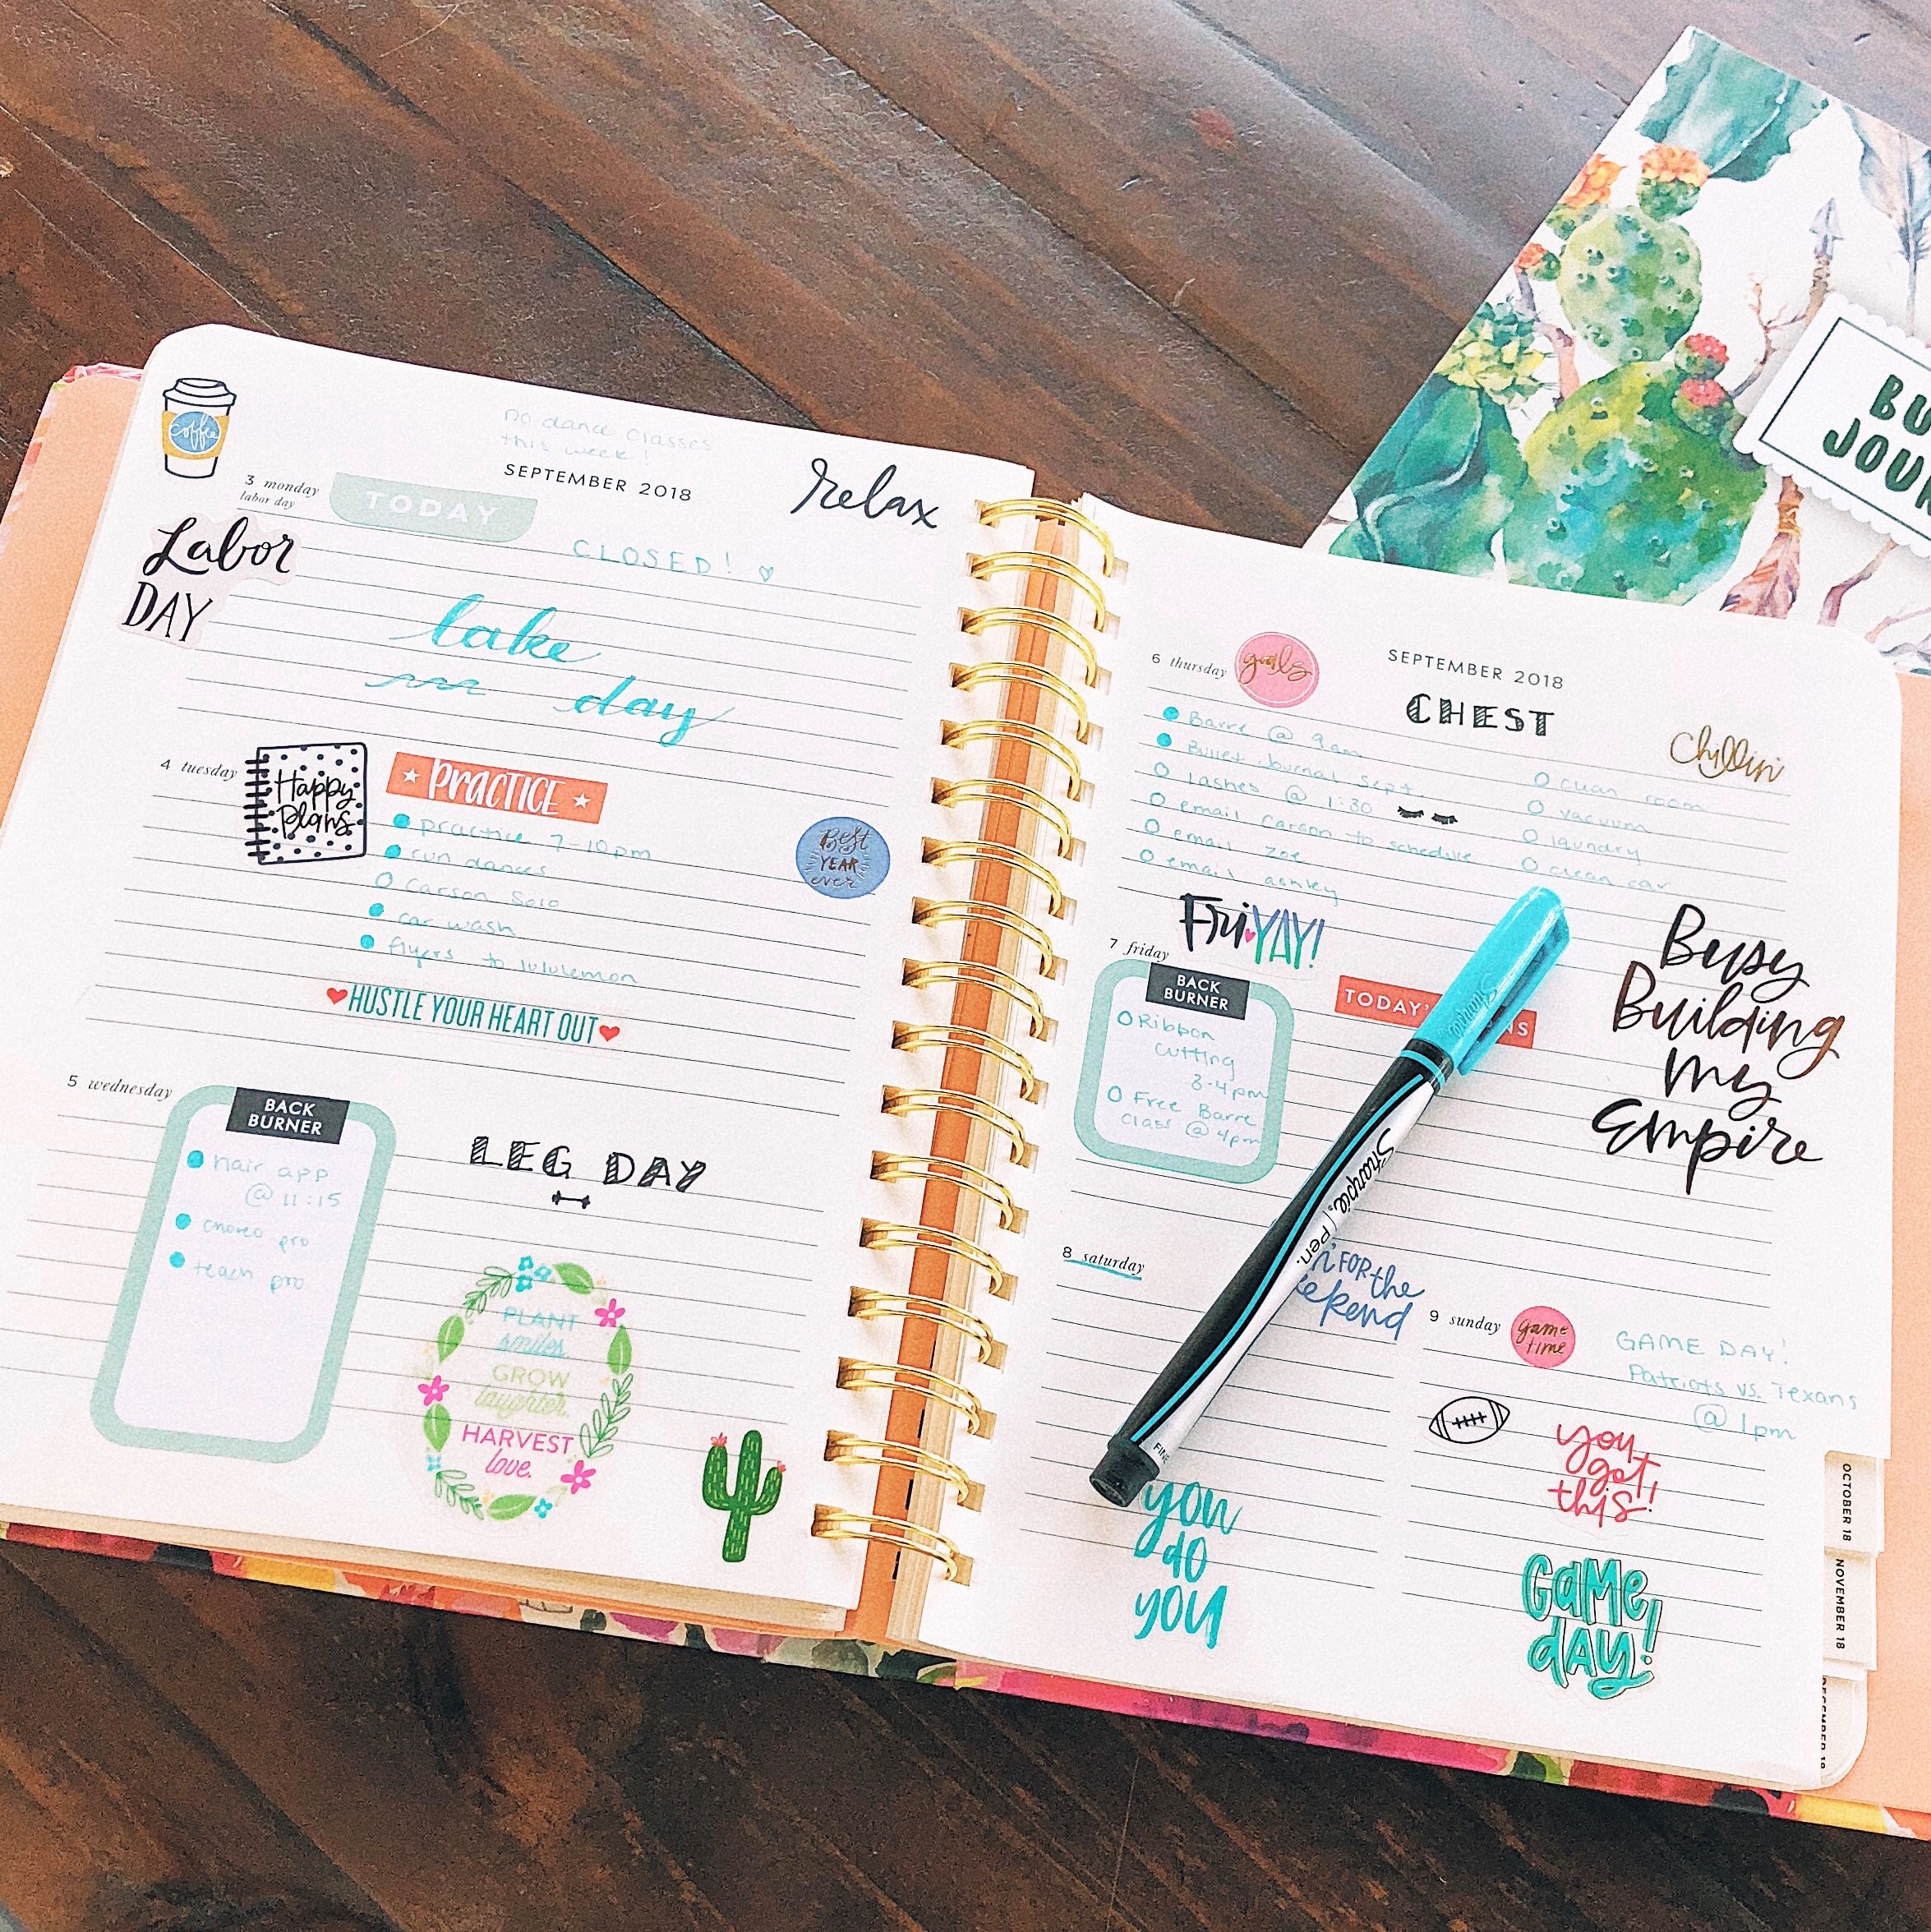 coffee
no dance classes
this week!
SEPTEMBER 2018
relax
3 monday
labor day
TODAY
Labor
DAY
CLOSED!
lake
day
4 tuesday
Happy
Plans
PRACTICE
practice 7-10pm
run dances
Carson Solo
car wash
flyers to lululemon
BEST
YEAR
ever
HUSTLE YOUR HEART OUT
5 wednesday
BACK
BURNER
hair app
@ 11:15
choreo pro
teach pro
LEG DAY
PLANT
smiles.
GROW
laughter.
HARVEST
love.
6 thursday
goals
SEPTEMBER 2018
CHEST
Chillin'
Barre @ 9am
Bullet Journal Sept.
lashes @ 1:30
email Carson to schedule
email zoe
email ashley
clean room
vacuum
laundry
clean car
Fri YAY!
7 friday
BACK
BURNER
Ribbon
cutting
3-4pm
Free Barre
class @ 4pm
TODAY'
NS
Busy
Building
My
Empire
Sharpie
Sharpie. Pen.
FINE
8 saturday
FOR the
ekend
you
do
you
9 sunday
game
time
GAME DAY!
Patriots vs. Texans
@ 1pm
you
got
this!
GAME
DAY!
OCTOBER 18
NOVEMBER 18
DECEMBER 18
BU
JOUR